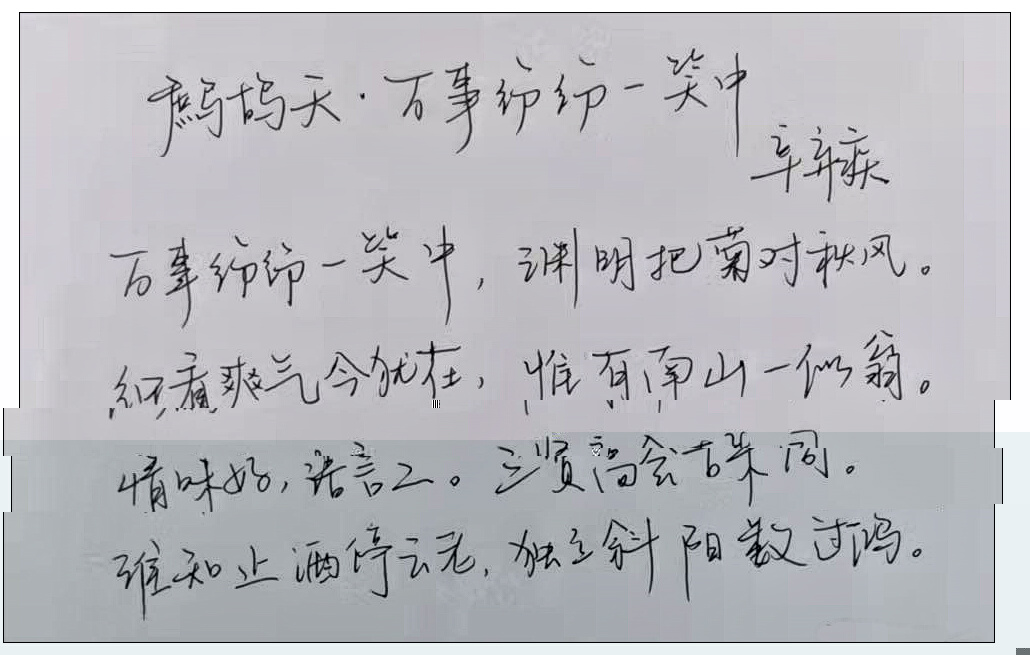 鹧鸪天·万事纷纷一笑中
辛弃疾
万事纷纷一笑中，渊明把菊对秋风。
细看爽气今犹在，惟有南山一似翁。
情味好，语言工。三贤高会古来同。
谁知止酒停云老，独立斜阳数过鸿。